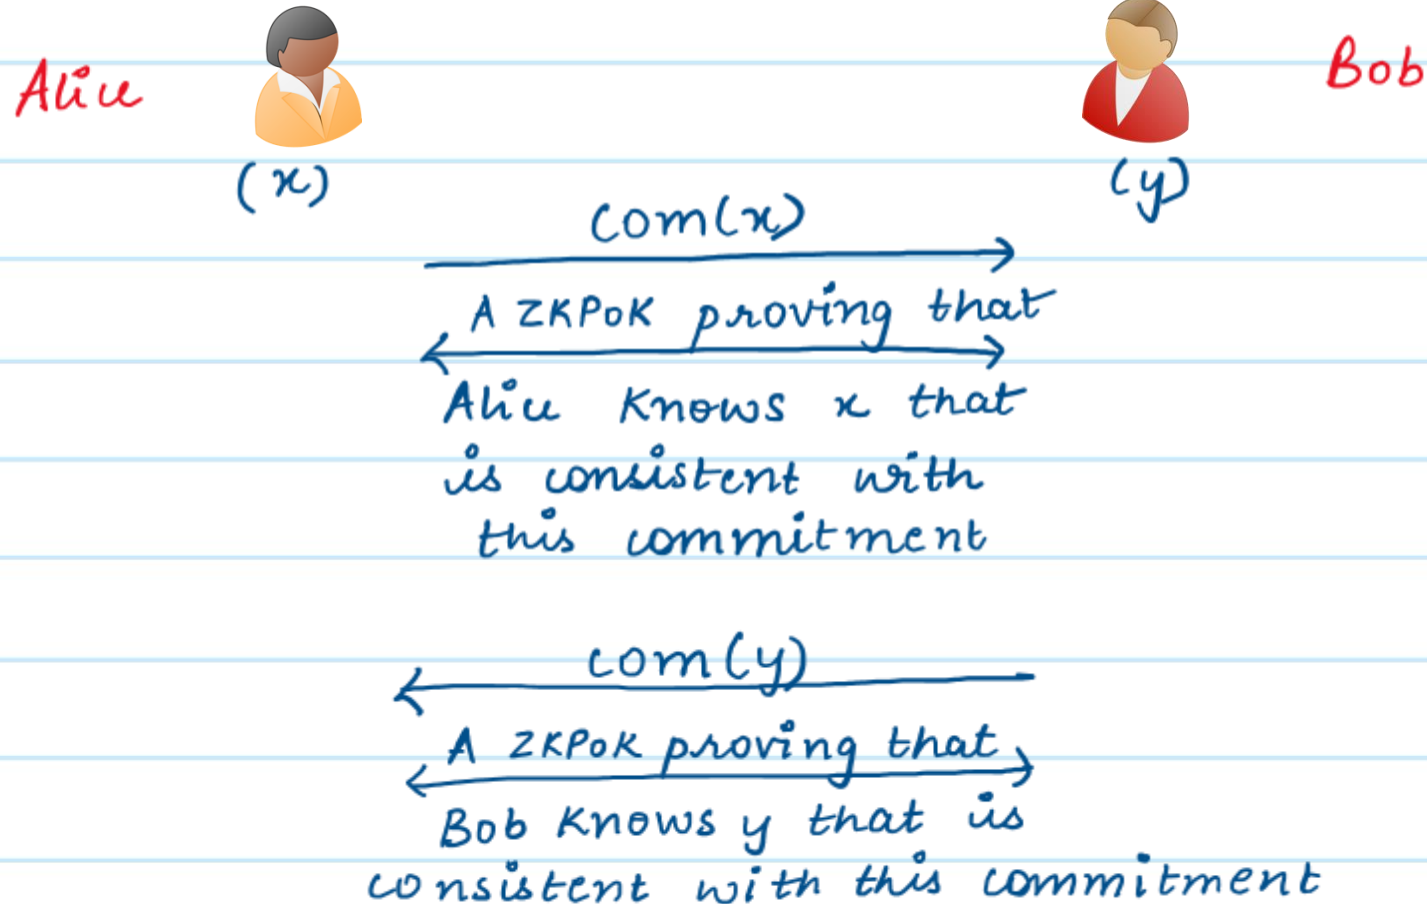 Alice
Bob
(x)
(y)
Com(x)
A ZKPoK proving that
Alice knows x that
is consistent with
this commitment
com(y)
A ZKPoK proving that
Bob knows y that is
consistent with this commitment